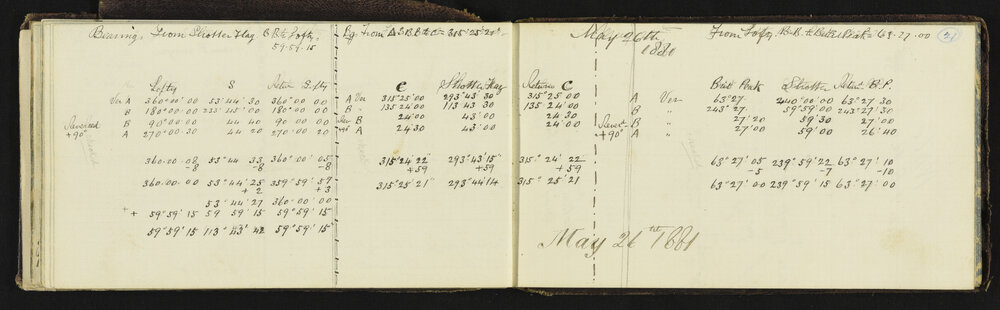 Bearings From Shotter Flag & Rly Lofty,
59.59.15
Lofty S Return Lofty
Ver A 360°00'00 53°44'30 360°00'00
B 180°00'00 233°45'00 180°00'00
Reversed B 90°00'00 44 40 90 00'00
+90° A 270°00'30 44 20 270°00 20
360.00.08 53°44'33 360°00'05
-8 -8 -8
360.00.00 53°44'25 359°59'57
+2 +3
53°44'27 360°00'00
+ 59°59'15 59 59 15 59°59'15
59°59'15 113°43'42 59°59'15
From Δ S.B.B to C = 315°25'20"
C Shotter Flag Return C
A Ver 315°25'00 293°43'30 315°25'00
B " 135 24'00 113 43 30 135 24'00
B 24'00 43'00 24 30
+90° A 24 30 43'00 24'00
315°24'22" 293°43'15" 315° 24' 22
+59 +59 +59
315°25'21" 293°44'14 315° 25'21
May 26th
1881
From Lofty, B.B. to Brit Peak = 63.27.00
21
Brit Peak Shotter Return B.P.
A Ver 63°27' 240°00'00 63°27'30
B " 243°27' 59°59'00 243°27'30
Revers B " 27'20 59'30 27'00
+90° A " 27'00 59'00 26'40
63°27'05 239°59'22 63°27'10
-5 -7 -10
63°27'00 239°59'15 63°27'00
May 26th 1881